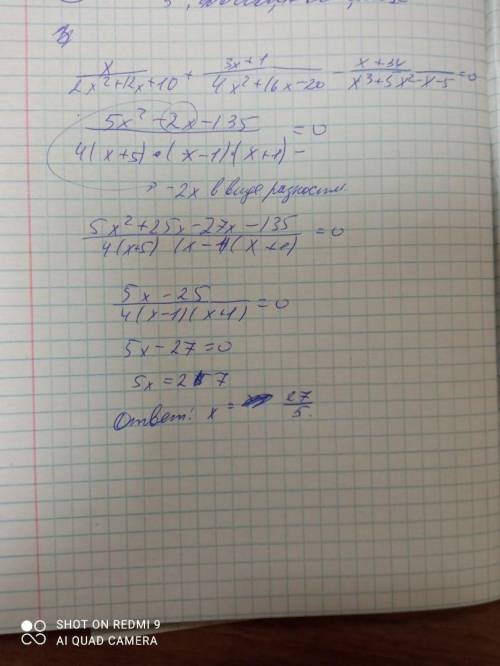 x/(2x²+12x+10) + (3x+1)/(4x²+16x-20) - (x+34)/(x³+5x²-x-5) =0
(5x²-2x-135)/(4(x+5)·(x-1)(x+1)) =0
-2x в виде разности
(5x²+25x-27x-135)/(4(x+5)(x-1)(x+1)) =0
(5x-25)/(4(x-1)(x+1)) =0
5x-27=0
5x=27
Ответ: x = 27/5.
SHOT ON REDMI 9
AI QUAD CAMERA